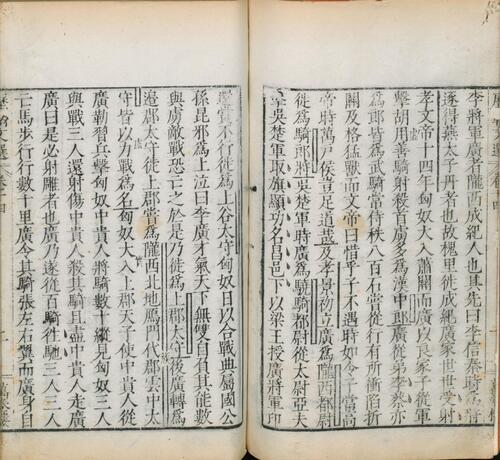 李將軍廣者隴西成紀人也其先曰李信秦時爲將
逐得燕太子丹者也故槐里徙成紀廣家世世受射
孝文帝十四年匈奴大入蕭關而廣以良家子從軍
擊胡用善騎射殺首虜多爲漢中郎廣從弟李蔡亦
爲郎皆爲武騎常侍秩八百石嘗從行有所衝陷折
關及格猛獸而文帝曰惜乎子不遇時如令子當高
帝時萬戶侯豈足道哉及孝景初立廣爲隴西都尉
徙爲騎郎將吳楚軍時廣爲驍騎都尉從太尉亞夫
擊吳楚軍取旗顯功名昌邑下以梁王授廣將軍印
還賞不行徙爲上谷太守匈奴日以合戰典屬國公
孫昆邪爲上泣曰李廣才氣天下無雙自負其能數
與虜敵戰恐亡之於是乃徙爲上郡太守後廣轉爲
邊郡太守徙上郡嘗爲隴西北地鴈門代郡雲中太
守皆以力戰爲名匈奴大入上郡天子使中貴人從
廣勒習兵擊匈奴中貴人將騎數十縱見匈奴三人
與戰三人還射傷中貴人殺其騎且盡中貴人走廣
廣曰是必射雕者也廣乃遂從百騎往馳三人三人
亡馬步行行數十里廣令其騎張左右翼而廣身自